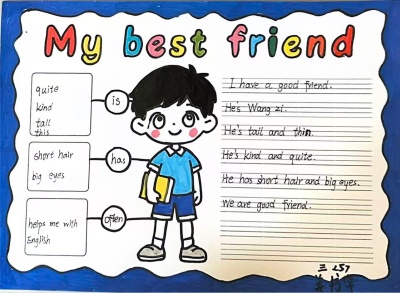 My best friend
quite
kind
tall
this
is
short hair
big eyes
has
helps me with
English
often
I have a good friend.
He's Wang zi.
He's tall and thin.
He's kind and quite.
He has short hair and big eyes.
We are good friend.
三 257